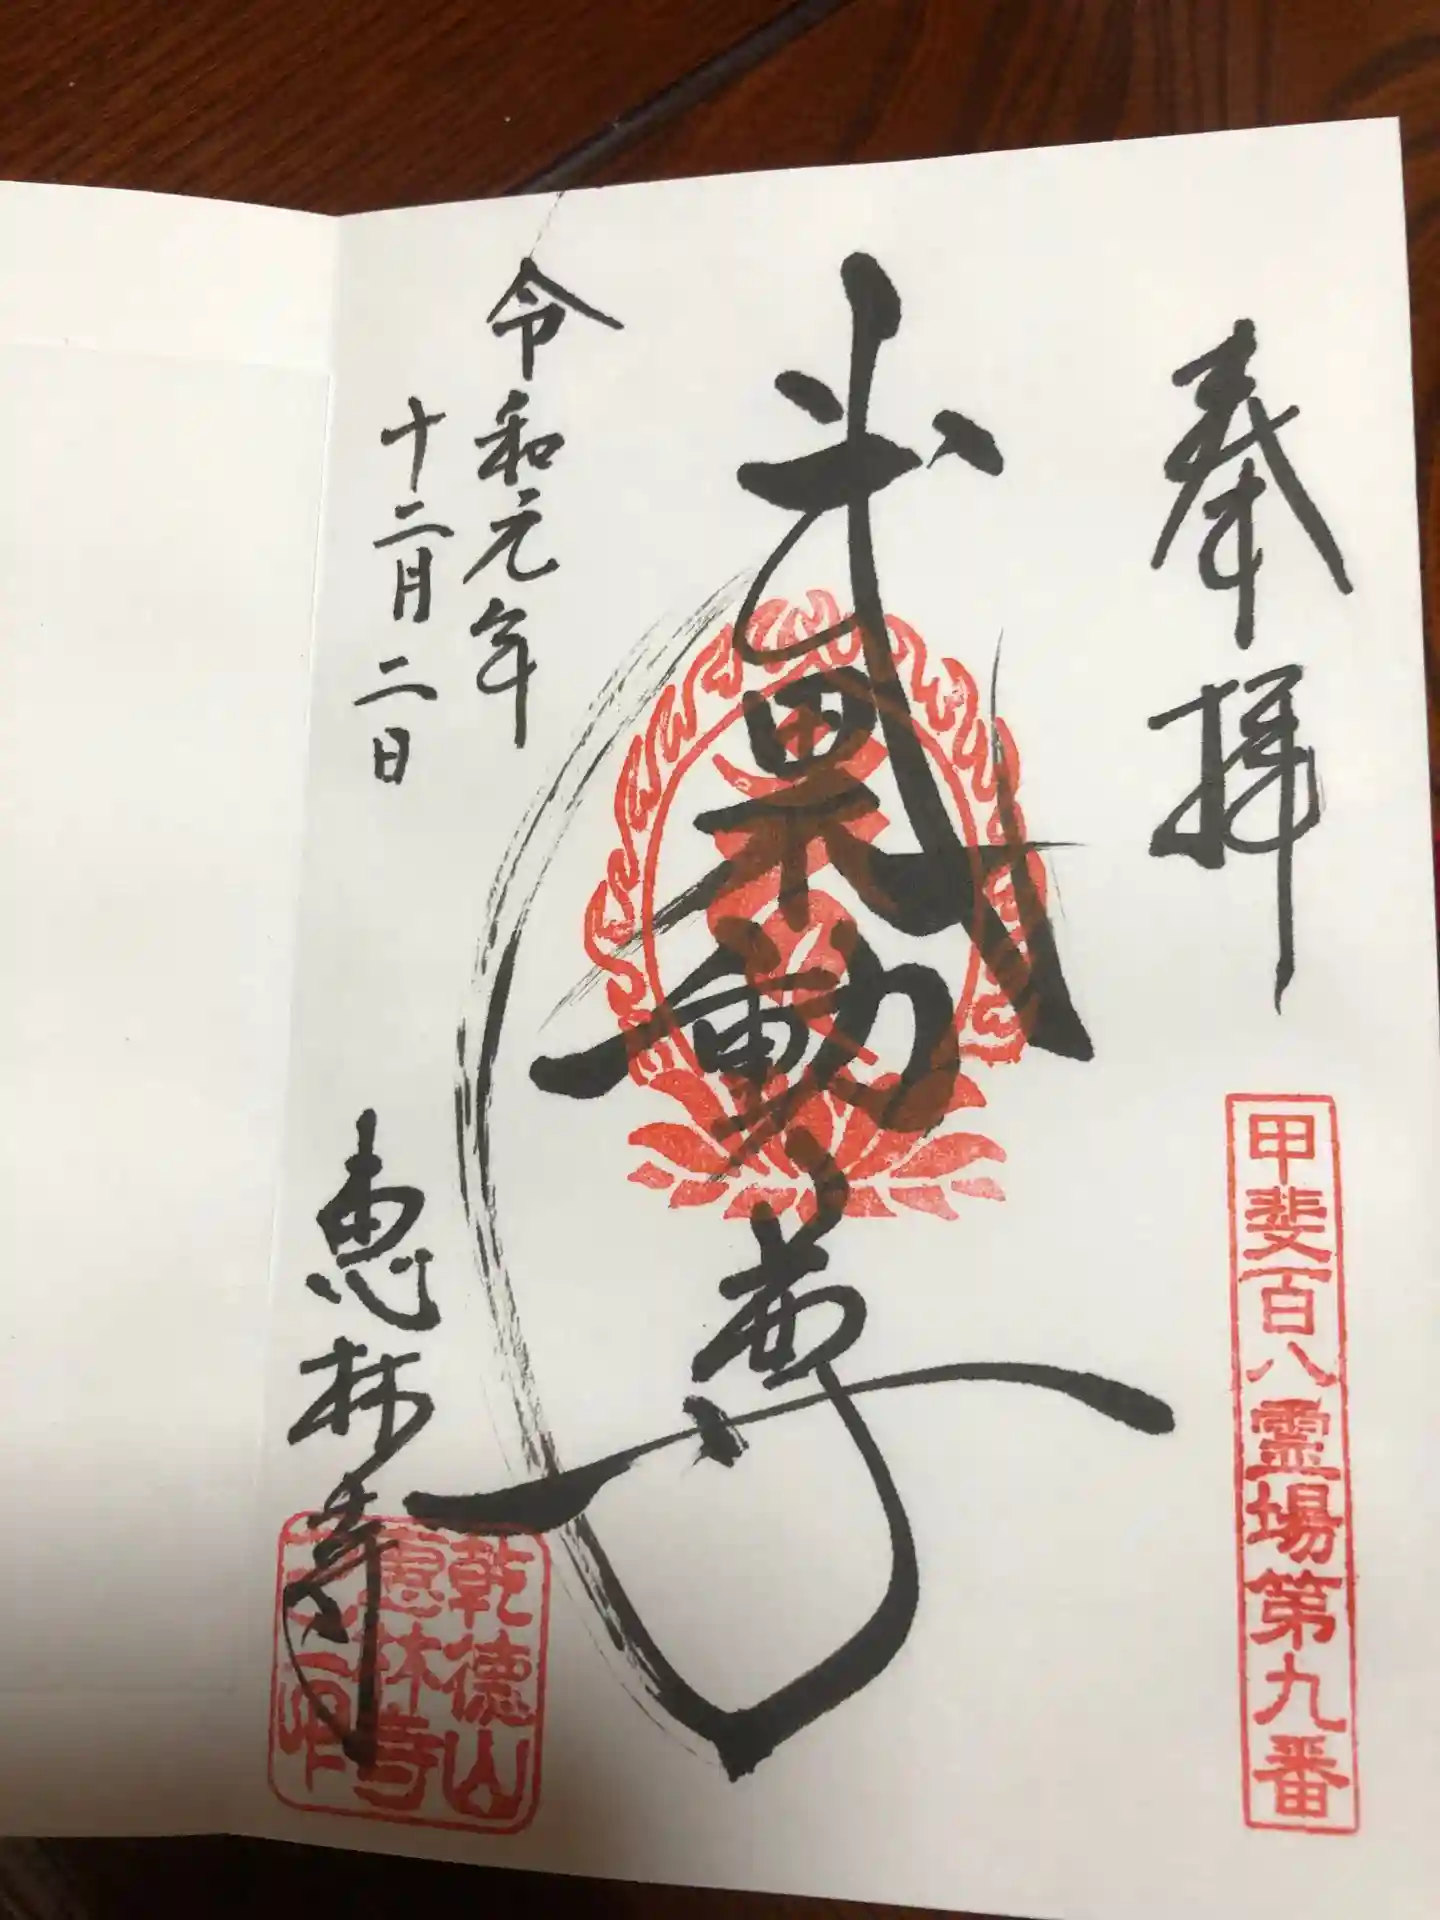 奉拝
甲斐百八霊場第九番
武田不動尊
令和元年
十二月二日
恵林寺
乾徳山
恵林寺
之印